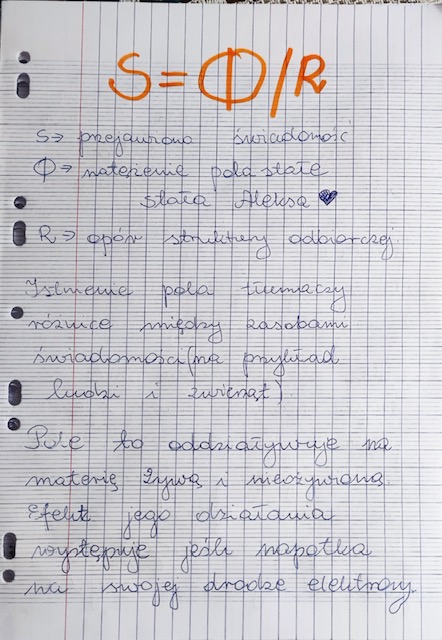 S=Φ/R
S→ przejawiona świadomość
Φ→ natężenie pola stałe
stała Aleksa ♥
R→ opór struktury odbiorczej.
Istnienie pola tłumaczy
różnice między zasobami
świadomości (na przykład
ludzi i zwierząt).
Pole to oddziaływuje na
materię żywą i nieożywioną.
Efekt jego działania
występuje jeśli napotka
na swojej drodze elektrony.